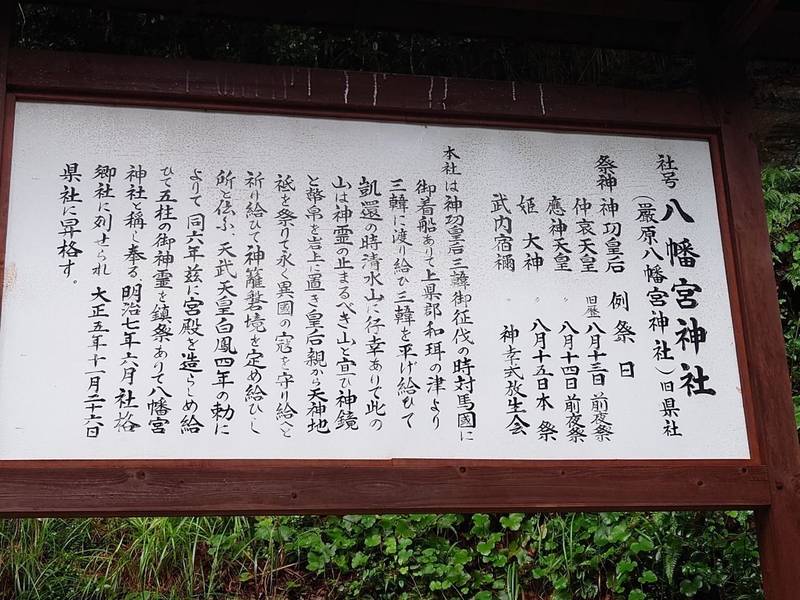 社号 八幡宮神社
(厳原八幡宮神社) 旧県社
祭神 神功皇后 例祭日
仲哀天皇 旧暦 八月十三日 前夜祭
應神天皇 〃 八月十四日 前夜祭
姫大神 〃 八月十五日 本祭
武内宿禰 神幸式放生会
本社は神功皇后三韓御征伐の時対馬國に
御着船ありて上県郡和珥の津より
三韓に渡り給ひ三韓を平げ給ひて
凱還の時清水山に行幸ありて此の
山は神霊の止まるべき山と宣ひ神鏡
と幣帛を岩上に置き皇后親から天神地
祇を祭りて永く異國の寇を守り給へと
祈け給ひて神籬磐境を定め給ひし
所と伝ふ、天武天皇白鳳四年の勅に
よりて同六年茲に宮殿を造らしめ給
ひて五柱の御神霊を鎮祭ありて八幡宮
神社と稱し奉る明治七年六月社格
郷社に列せられ大正五年十一月二十六日
県社に昇格す。